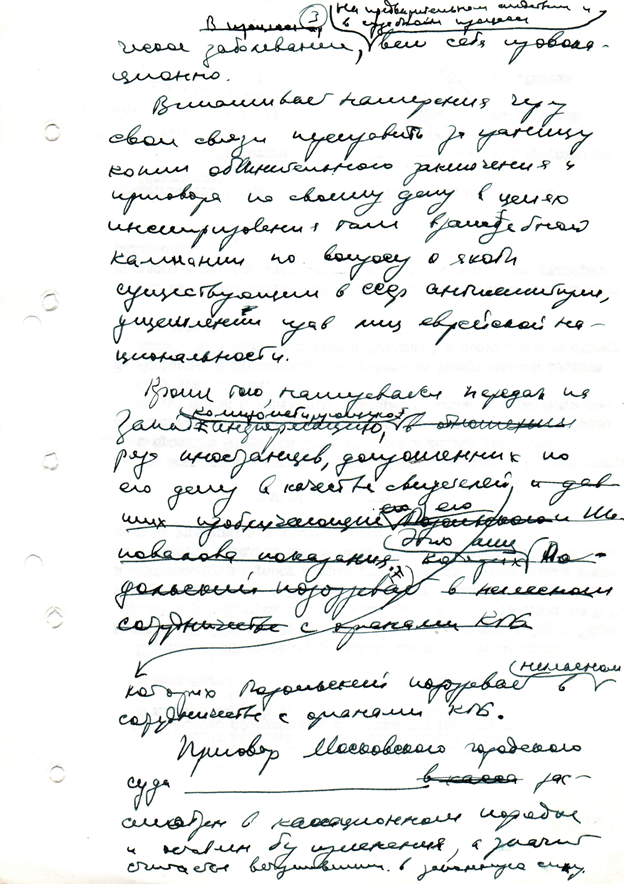 3
на предварительном следствии и
В процессе в судебном процессе
ческое заболевание, вел себя провока-
ционно.
Вынашивает намерения через
свои связи переправить за границу
копии обвинительного заключения и
приговора по своему делу в целях
инспирирования там враждебной
кампании по вопросу о якобы
существующем в СССР антисемитизме,
ущемлении прав лиц еврейской на-
циональности.
Кроме того, намеревался передать на
компрометирующую
Запад информацию, в отношении
ряд иностранцев, допрошенных по
его делу в качестве свидетелей, и дав
его его
ших изобличающие Подольского и Ше-
повалова показания, которых По-
дольский подозревает в негласном
сотрудничестве с органами КГБ
негласном
которых Подольский подозревает в
сотрудничестве с органами КГБ.
Приговор Московского городского
суда в касса рас-
смотрен в кассационном порядке
и оставлен без изменения, а значит
считается вступившим в законную силу.